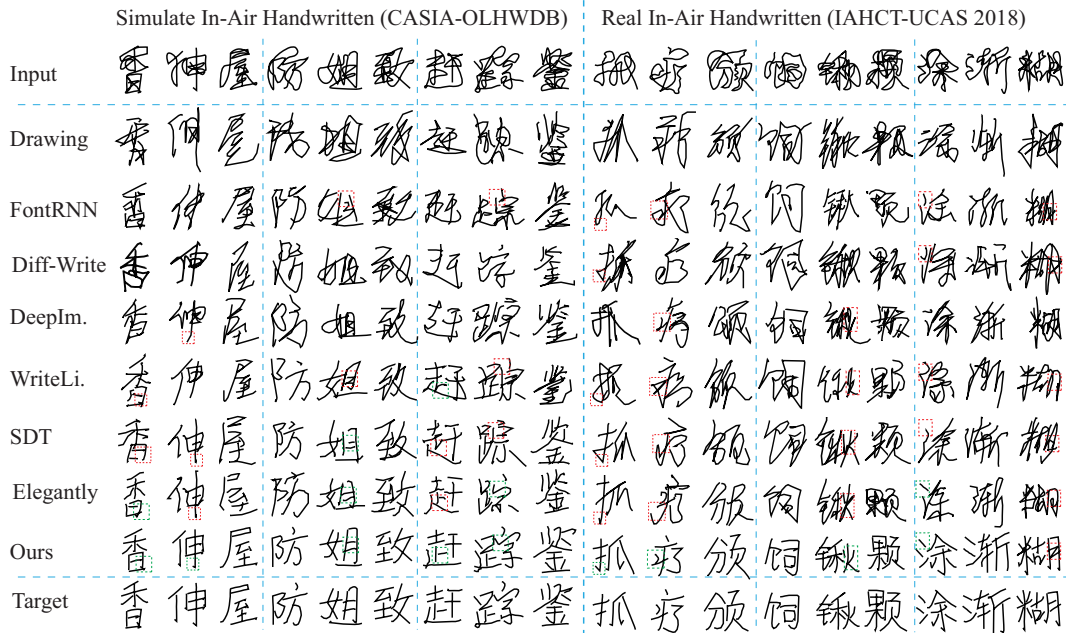 Simulate In-Air Handwritten (CASIA-OLHWDB) Real In-Air Handwritten (IAHCT-UCAS 2018)
Input 香 伸 屋 防 姐 致 赶 踪 鉴 抓 疗 颁 饲 锹 颗 涂 渐 糊
Drawing 香 伸 屋 防 姐 致 赶 踪 鉴 抓 疗 颁 饲 锹 颗 涂 渐 糊
FontRNN 香 伸 屋 防 姐 致 赶 踪 鉴 抓 疗 颁 饲 锹 颗 涂 渐 糊
Diff-Write 香 伸 屋 防 姐 致 赶 踪 鉴 抓 疗 颁 饲 锹 颗 涂 渐 糊
DeepIm. 香 伸 屋 防 姐 致 赶 踪 鉴 抓 疗 颁 饲 锹 颗 涂 渐 糊
WriteLi. 香 伸 屋 防 姐 致 赶 踪 鉴 抓 疗 颁 饲 锹 颗 涂 渐 糊
SDT 香 伸 屋 防 姐 致 赶 踪 鉴 抓 疗 颁 饲 锹 颗 涂 渐 糊
Elegantly 香 伸 屋 防 姐 致 赶 踪 鉴 抓 疗 颁 饲 锹 颗 涂 渐 糊
Ours 香 伸 屋 防 姐 致 赶 踪 鉴 抓 疗 颁 饲 锹 颗 涂 渐 糊
Target 香 伸 屋 防 姐 致 赶 踪 鉴 抓 疗 颁 饲 锹 颗 涂 渐 糊